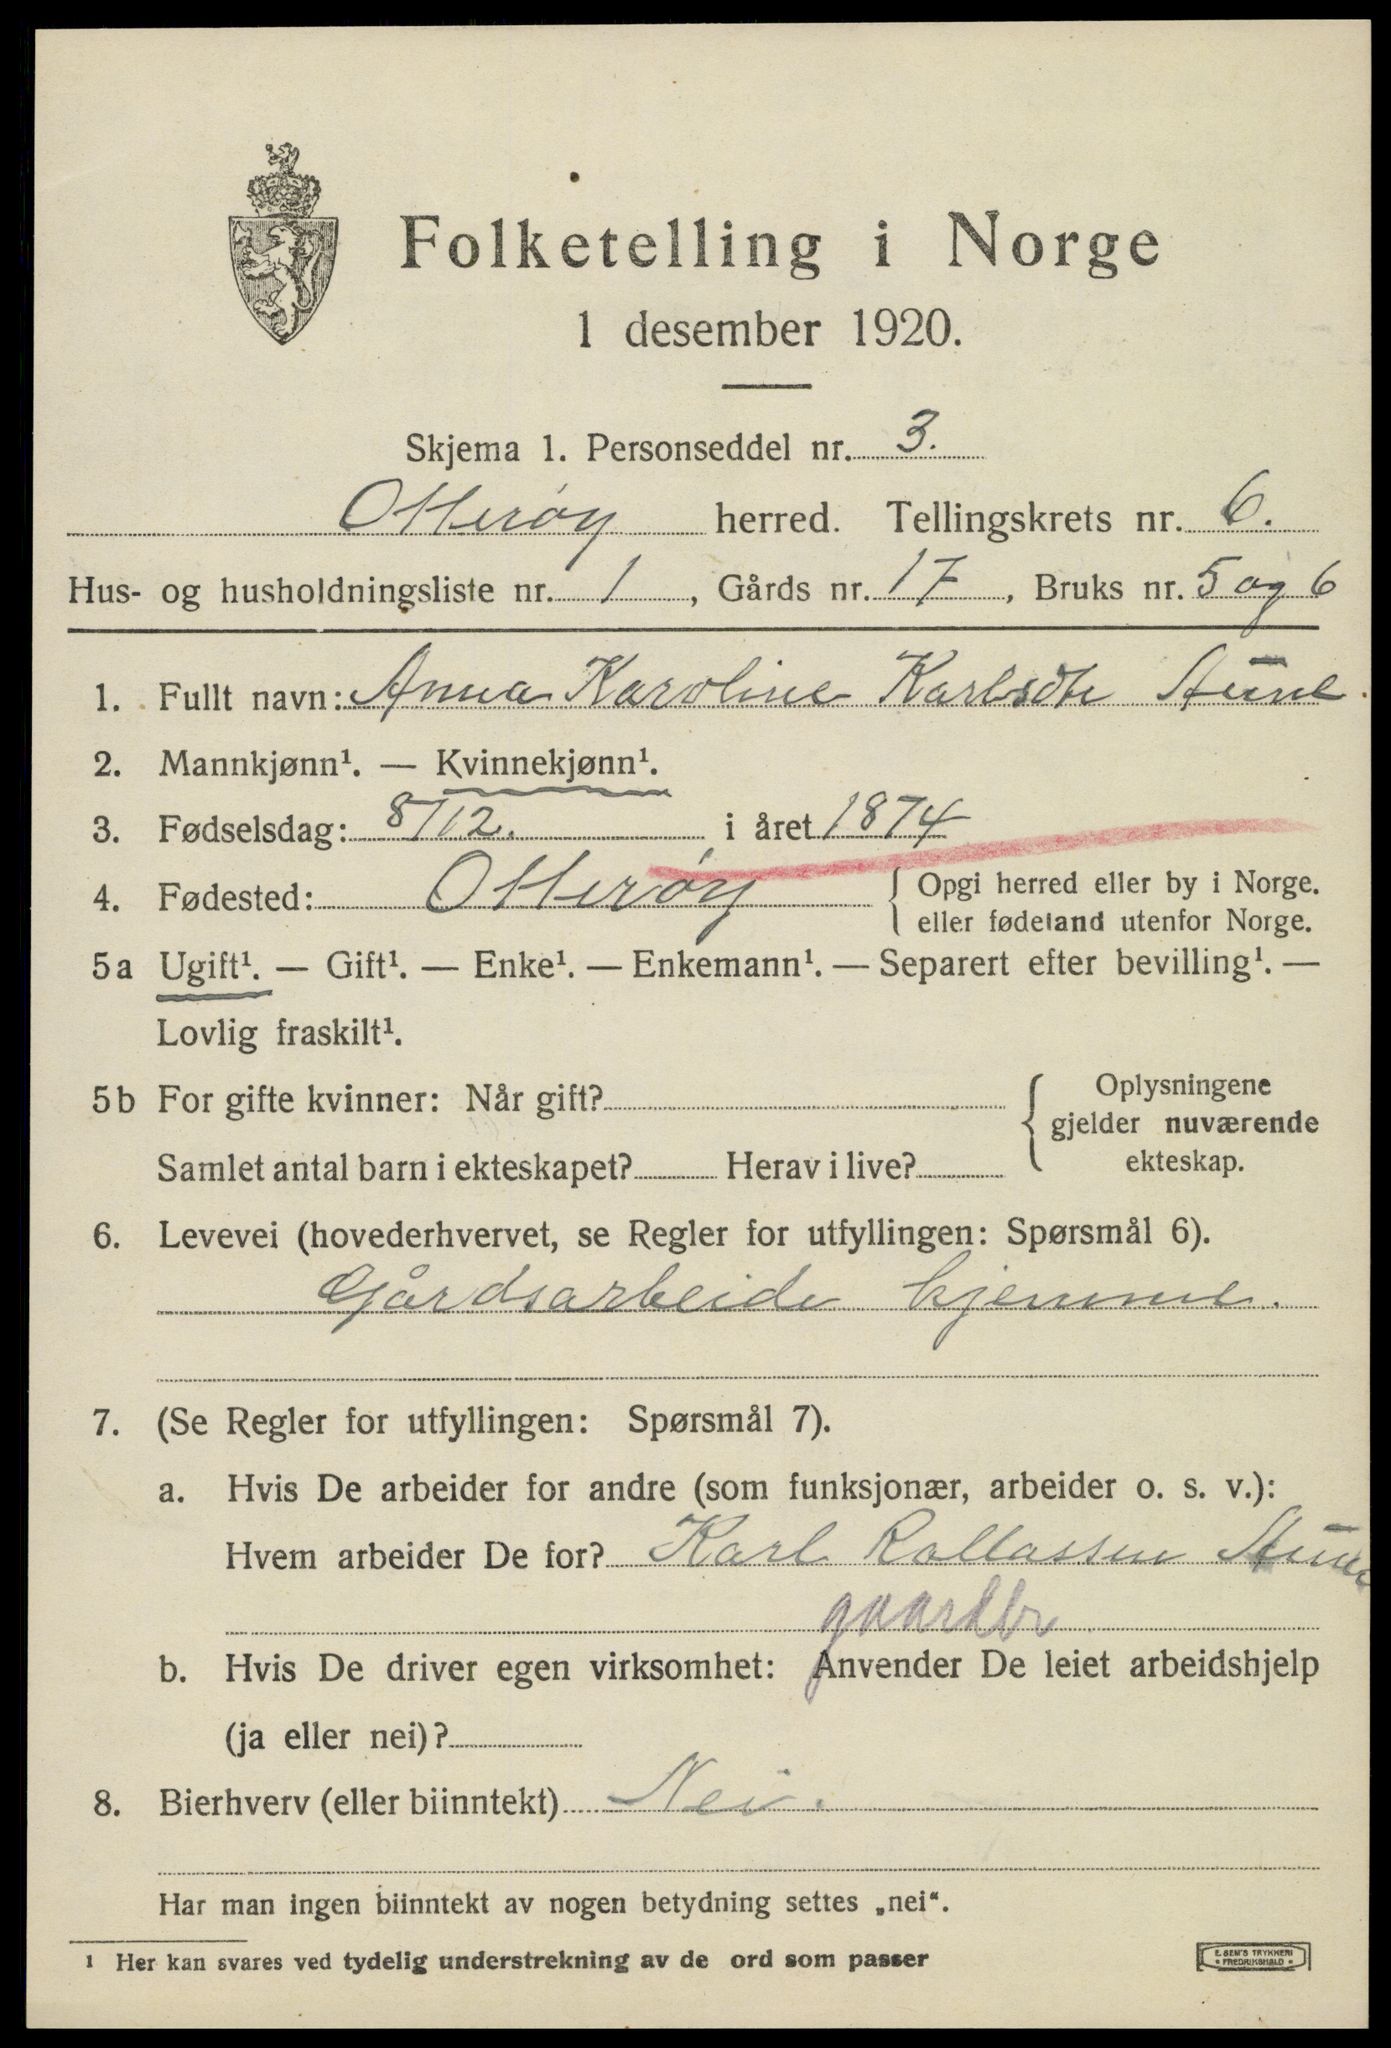 Folketelling i Norge
1 desember 1920.
Skjema 1. Personseddel nr. 3.
Otterøy herred. Tellingskrets nr. 6.
Hus- og husholdningsliste nr. 1, Gårds nr. 17, Bruks nr. 5 og 6
1. Fullt navn: Anna Karoline Karlsdtr Aune.
2. Mannkjønn¹. — Kvinnekjønn¹.
3. Fødselsdag: 8/12. i året 1874
4. Fødested: Otterøy { Opgi herred eller by i Norge.
eller fødeland utenfor Norge.
5a Ugift¹. — Gift¹. — Enke¹. — Enkemann¹. — Separert efter bevilling¹. —
Lovlig fraskilt¹.
5b For gifte kvinner: Når gift? { Oplysningene
gjelder nuværende
Samlet antal barn i ekteskapet? Herav i live? ekteskap.
6. Levevei (hovederhvervet, se Regler for utfyllingen: Spørsmål 6).
Gårdsarbeide hjemme.
7. (Se Regler for utfyllingen: Spørsmål 7).
a. Hvis De arbeider for andre (som funksjonær, arbeider o. s. v.):
Hvem arbeider De for? Karl Aune
gaardbr
b. Hvis De driver egen virksomhet: Anvender De leiet arbeidshjelp
(ja eller nei)?
8. Bierhverv (eller biinntekt) Nei.
Har man ingen biinntekt av nogen betydning settes „nei“.
1 Her kan svares ved tydelig understrekning av de ord som passer
E. SEM'S TRYKKERI
FREDRIKSHALD